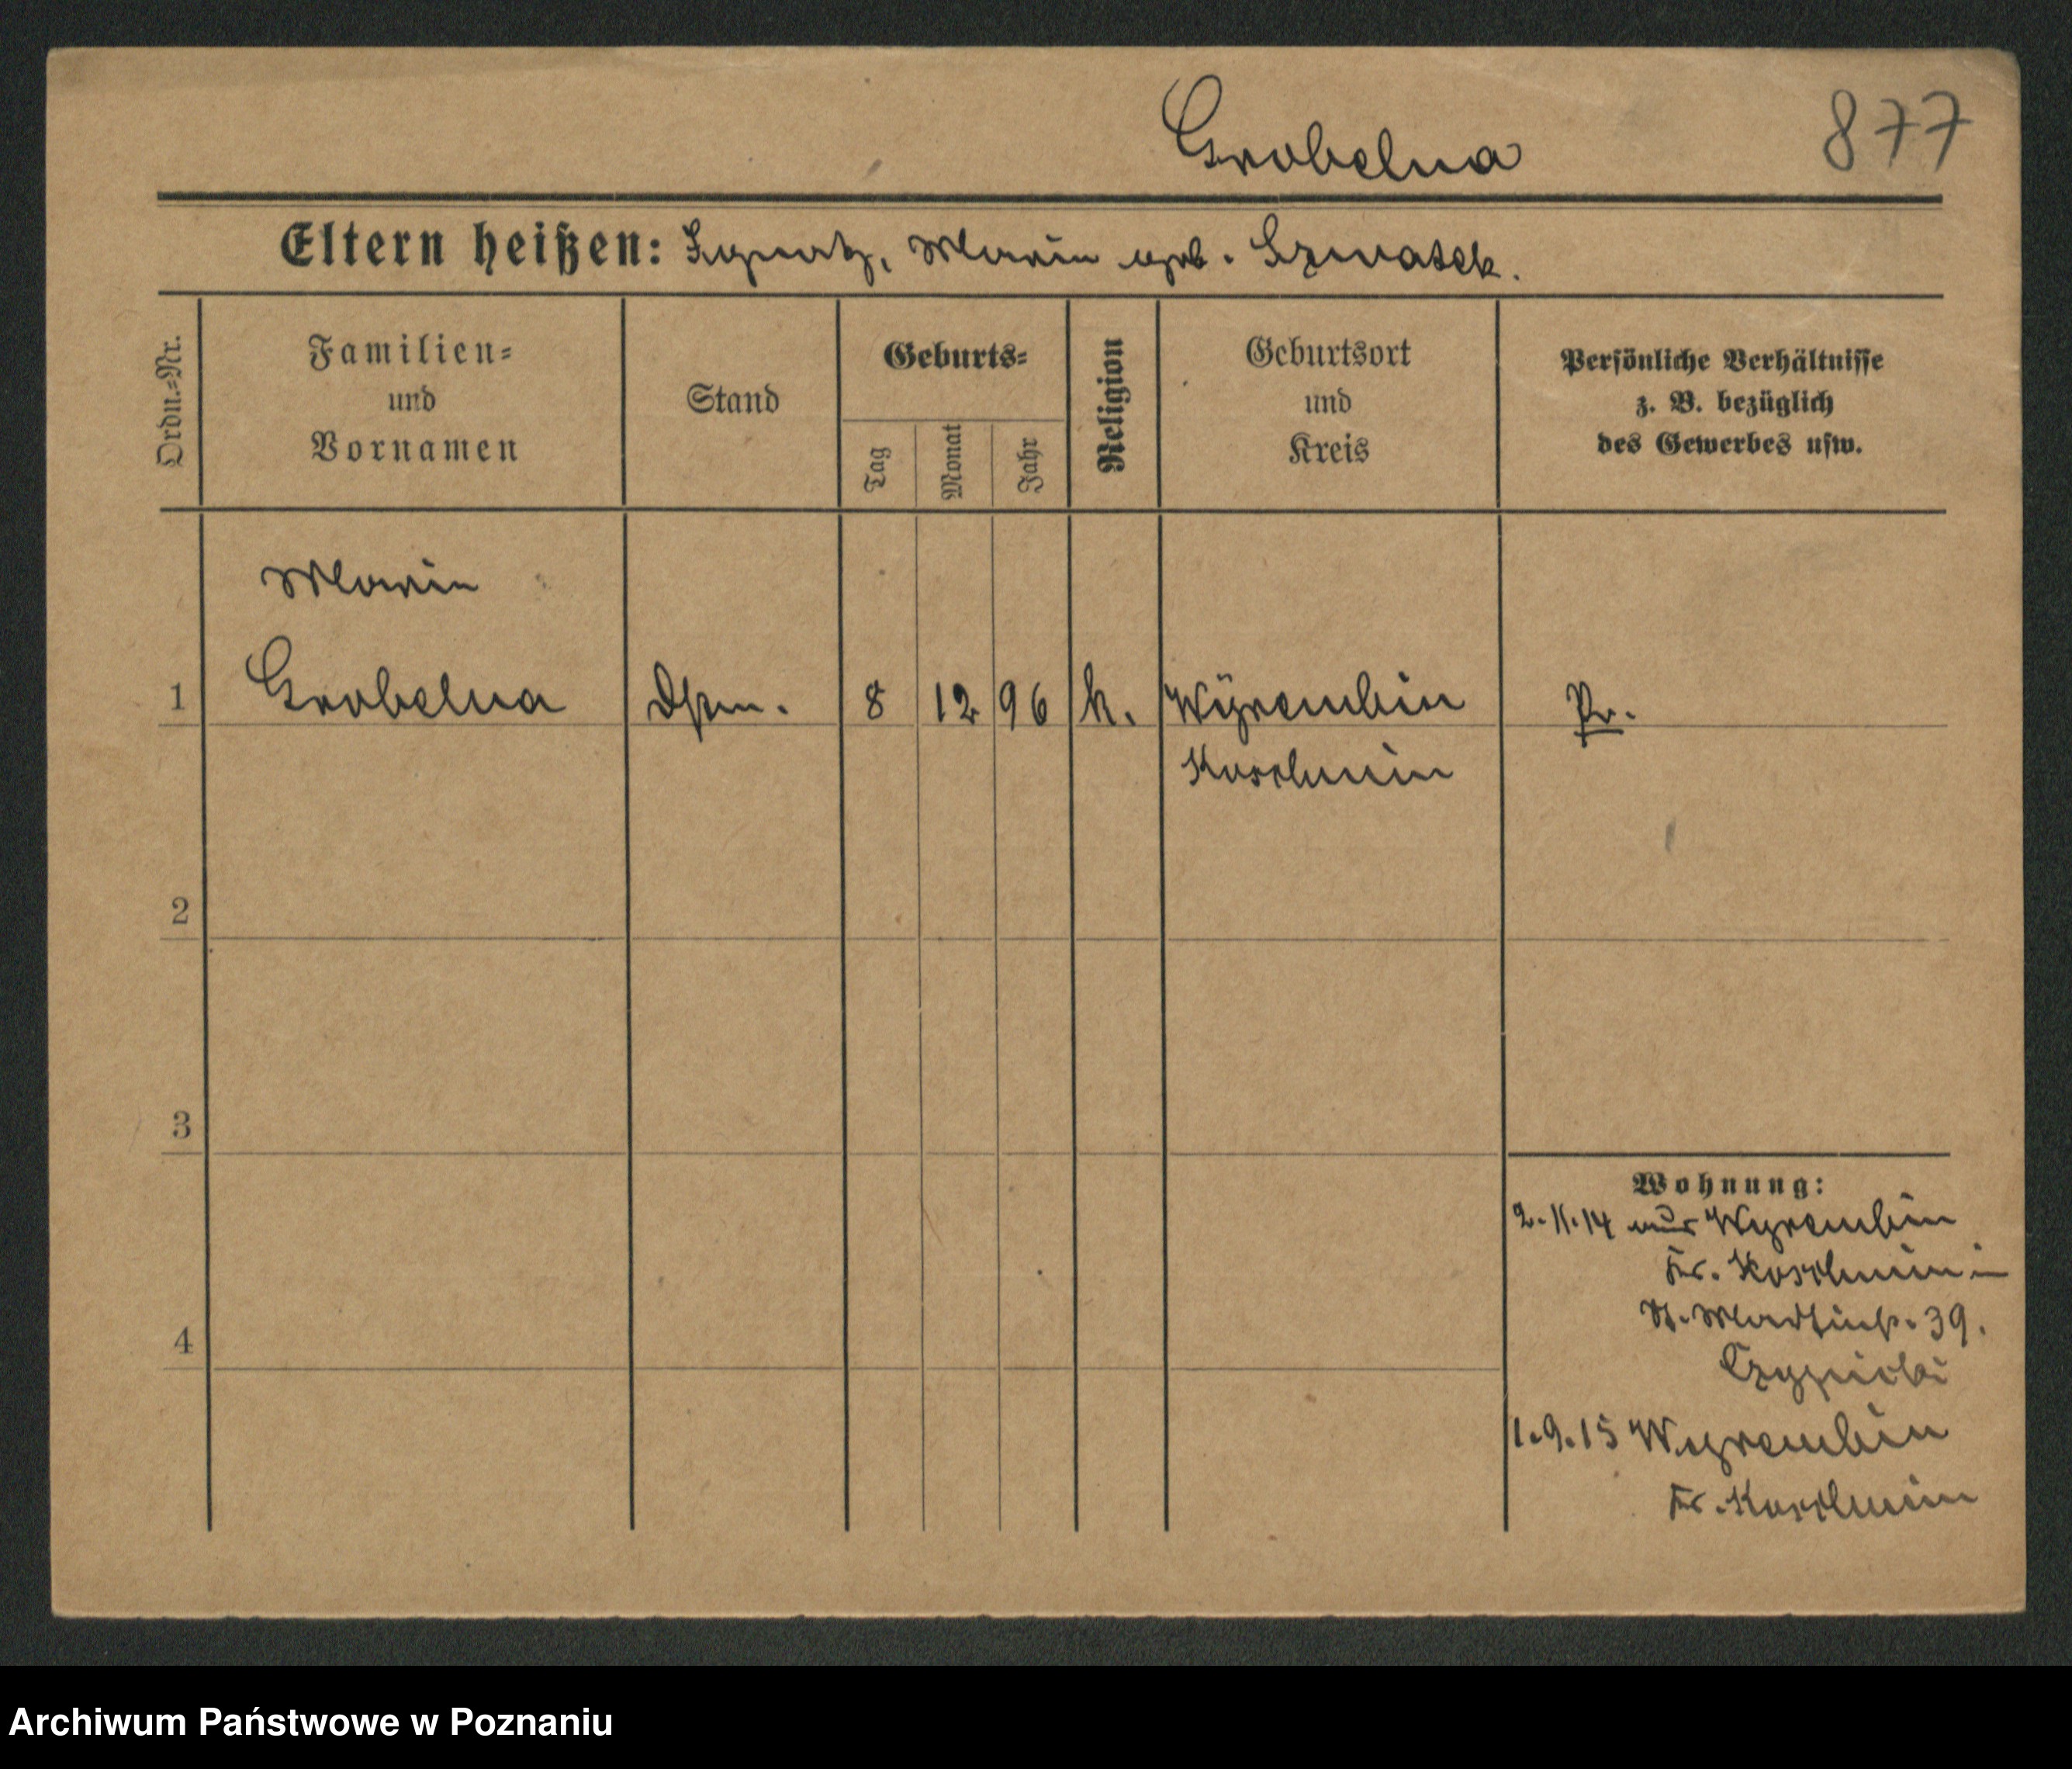 Grobelna
877
Eltern heißen: Ignatz, Maria geb. Szwatek.
Ordn.=Nr.
Familien=
und
Vornamen
Stand
Geburts=
Tag
Monat
Jahr
Religion
Geburtsort
und
Kreis
Persönliche Verhältnisse
z. B. bezüglich
des Gewerbes usw.
Maria
1 Grobelna Dstm. 8 12 96 k. Wyrembin Pr.
Koschmin
2
3
Wohnung:
2.11.14 aus Wyrembin
Kr. Koschmin in
39.
4
1.9.15 Wyrembin
Kr. Koschmin
Archiwum Państwowe w Poznaniu